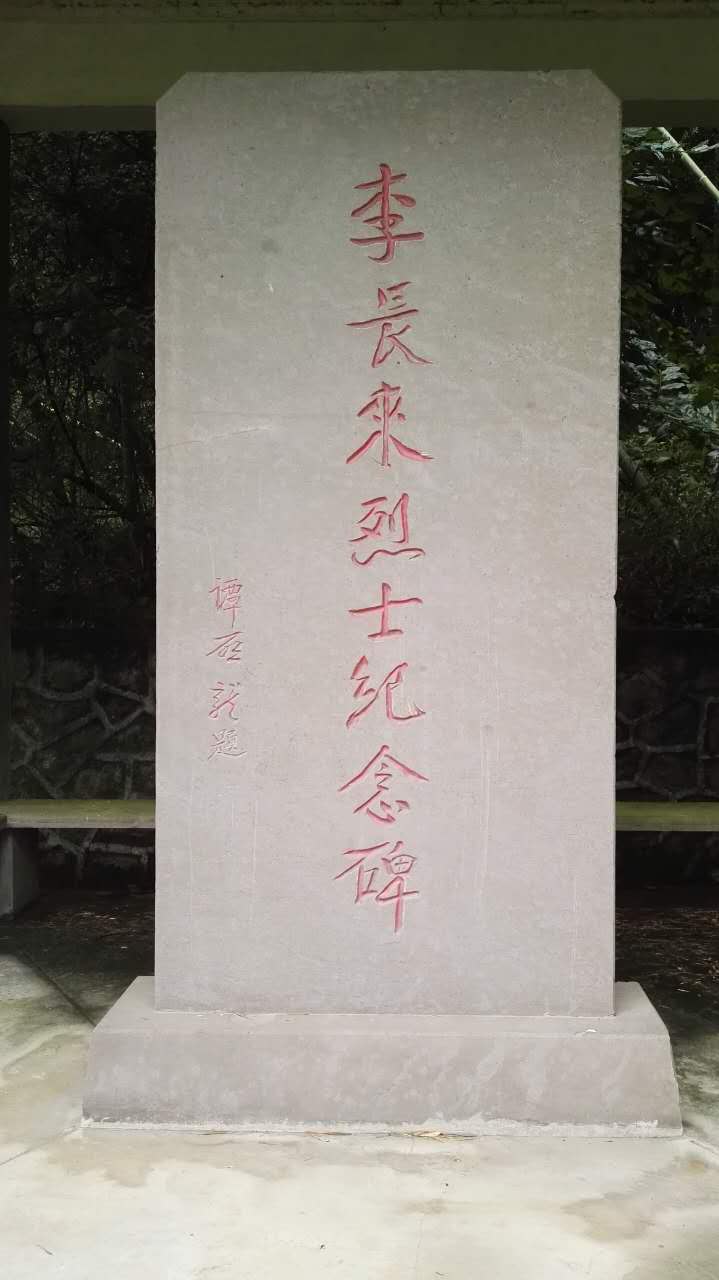 李長來烈士纪念碑
谭启龙題